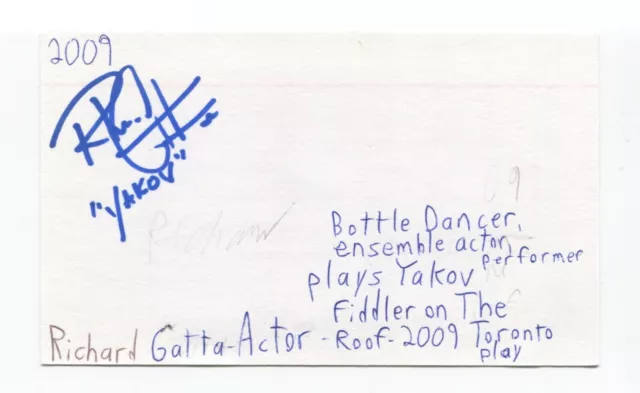 2009
"YAKOV"
Bottle Dancer,
ensemble actor,
performer
plays Yakov
Fiddler on The
Richard Gatta-Actor - Roof - 2009 Toronto
play